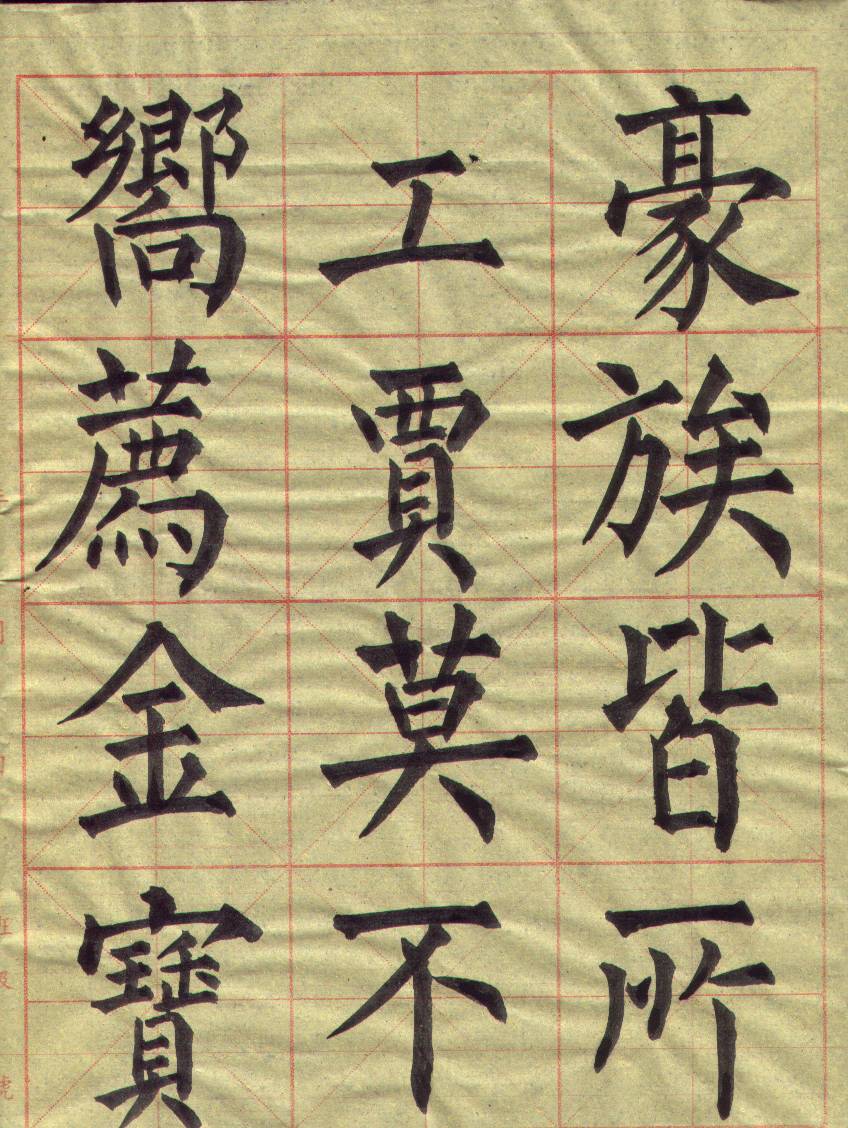 豪族皆所
工賈莫不
嚮薦金寶